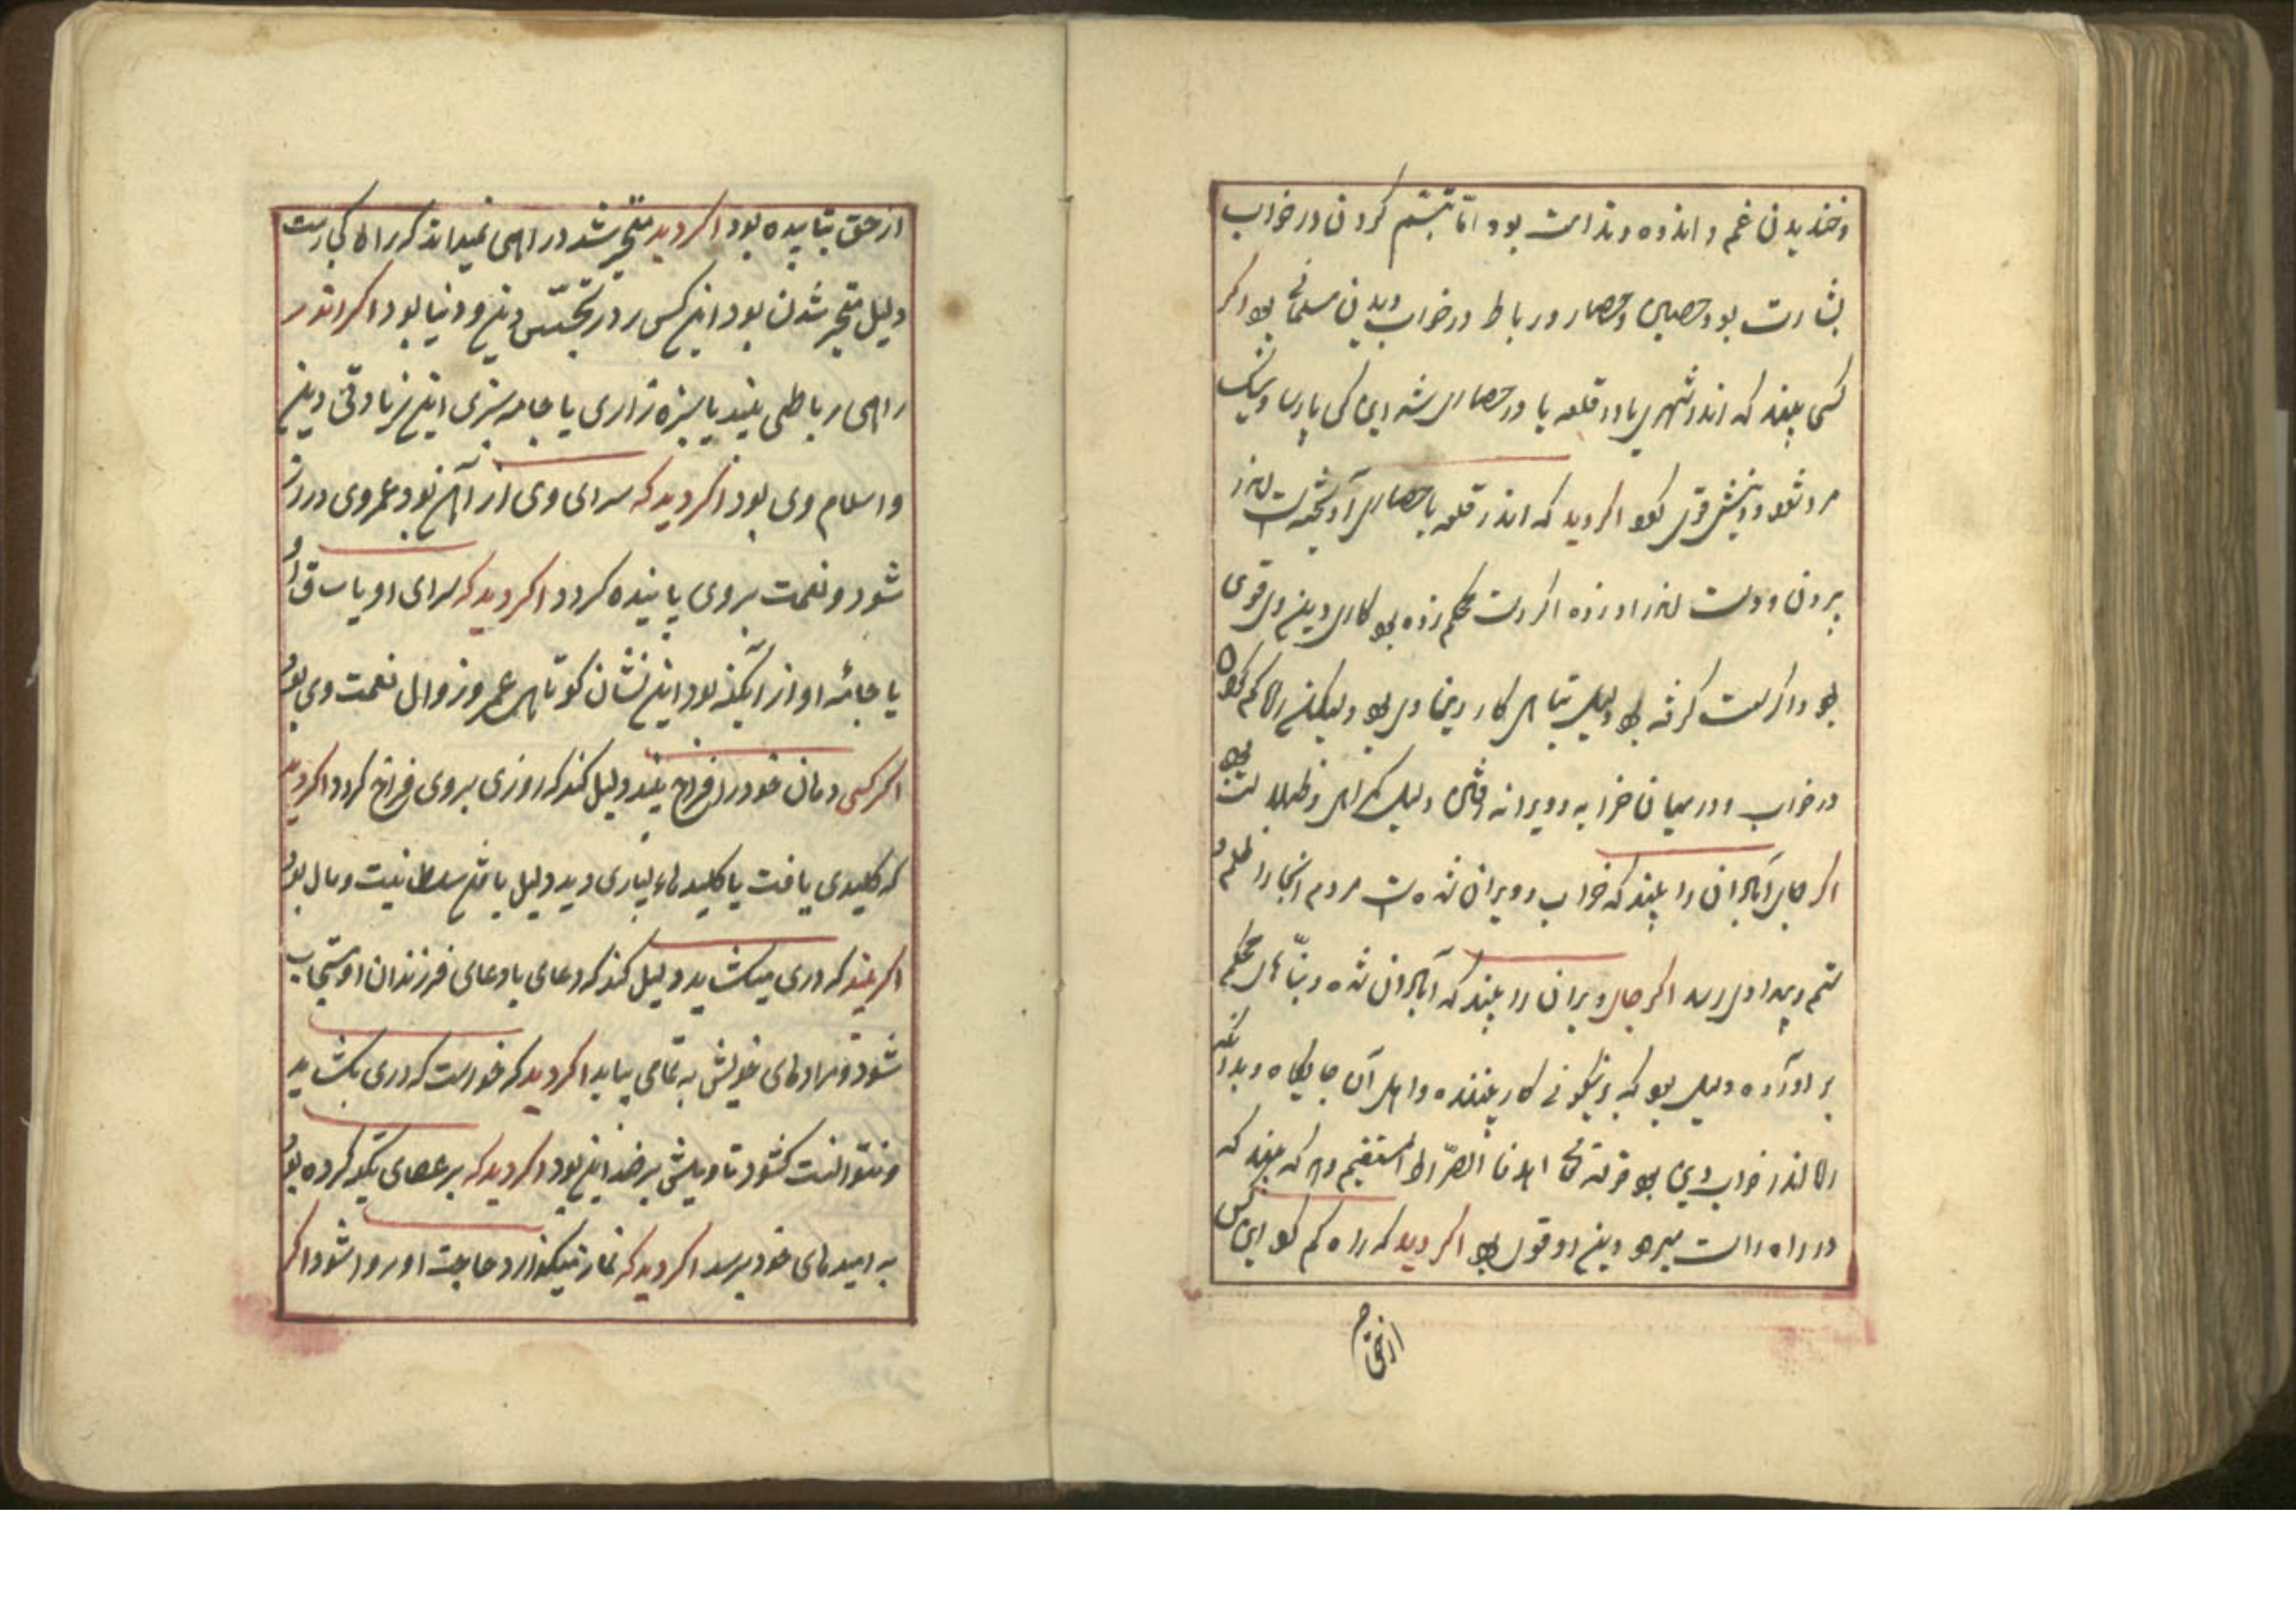 وخندیدن غم و اندوه و ندامت بود امّا تبسّم کردن در خواب
بشارت بود حصن و حصار و رباط در خواب دیدن مسلمانی بود اگر
کسی بیند که اندر شهری یا در قلعه یا در حصاری شد این کس پارسا و نیک
مرد شود و دینش قوی شود اگر دید که اندر قلعه یا حصاری آویخته است از
برون و دست اندر او زده اگر دست محکم زده بود کار دین وی قوی
بود و اگر سست گرفته بود دلیل تباهی کار دین وی بود ولیکن راه گم کردن
در خواب و در میان خرابه و ویرانه دلیل گمراهی و ظلالت بود
اگر جای آبادان را بیند که خراب و ویران شده است مردم آنجا را ظلم و
ستم و بیداد رسد اگر جای ویران را بیند که آبادان شده و بنّاهای محکم
بر آورده دلیل بود که بر نیکوئی کار بیننده و اهل آن جایگاه و بدانکه
راه اندر خواب دین بود قوله تعالی اهدنا الصّراط المستقیم و هر که بیند که
در راه راست میرود دین او قوی بود اگر دید که راه گم کرد این کس
از حق
از حق بتابیده بود اگر دید متحیّر شد در راهی نمیداند که راه کجا است
دلیل متحیر شدن بود این کس در تجسّس دین و دنیا بود اگر اندر
راهی رباطی بیند یا سبزه زاری یا جامه سبزی این زیادتی دین
و اسلام وی بود اگر دید که سرای وی از آهن بود عمر وی دراز
شود و نعمت بر وی پاینده گردد اگر دید که سرای او یا ساق او
یا جامه او از آبگینه بود این نشان کوتاهی عمر و زوال نعمت وی بود
اگر کسی دهان خود را فراخ بیند دلیل کند که روزی بر وی فراخ گردد اگر دید
که کلیدی یافت یا کلیدهاء بسیاری دید دلیل یافتن سلطانیت و مال بود
اگر بیند که دری میگشاید دلیل کند که دعای یا دعای فرزندان او مستجاب
شود و مرادهای خویش به تمامی بیابد اگر دید که خواست که دری بگشاید
و نتوانست گشود تاویلش بر ضد این بود اگر دید که بر عصای تکیه کرده بود
به امیدهای خود برسد اگر دید که نماز میگذارد حاجت او روا شود اگر